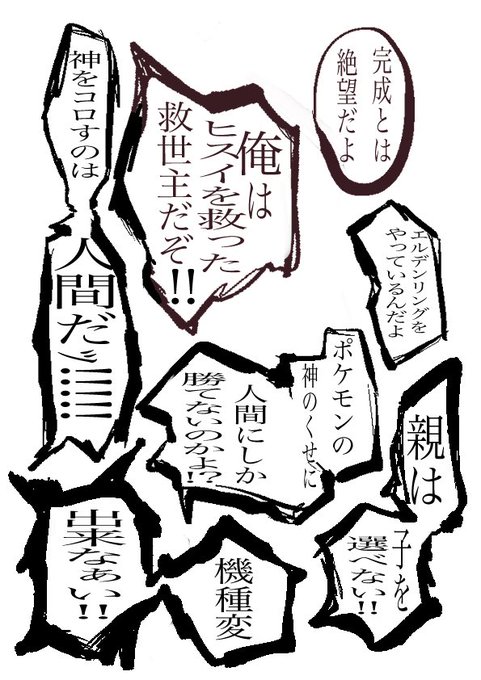 完成とは
絶望だよ
俺は
ヒスイを救った
救世主だぞ!!
神をコロすのは
人間だﾞ!!!!!
エルデンリングを
やっているんだよ
ポケモンの
神のくせに
人間にしか
勝てないのかよ!?
親は
子を
選べない!!
機種変
出来なぁい!!